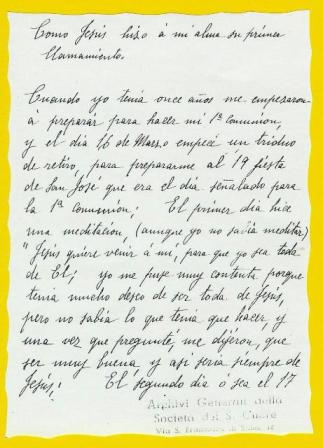 Como Jesús hizo á mi alma su primer
llamamiento.
Cuando yo tenia once años me empezaron
a preparár para hacer mi 1ª comunion,
y el dia 16 de Marzo empecé un triduo
de retiro, para prepararme al 19 fiesta
de San José que era el dia señalado para
la 1ª comunión; El primer dia hice
una meditación, (aunque yo no sabia meditar)
"Jesús quiere venir á mi, para que yo sea toda
de El; yo me puse muy contenta porque
tenia mucho deseo de ser toda de Jesús,
pero no sabia lo que tenia que hacer y
una vez que pregunté, me dijeron, que
ser muy buena y asi seria siempre de
Jesús; El segundo dia ó sea el 17
Archivi Generali della
Società del S. Cuore
Via S. Francesco di Sales 18